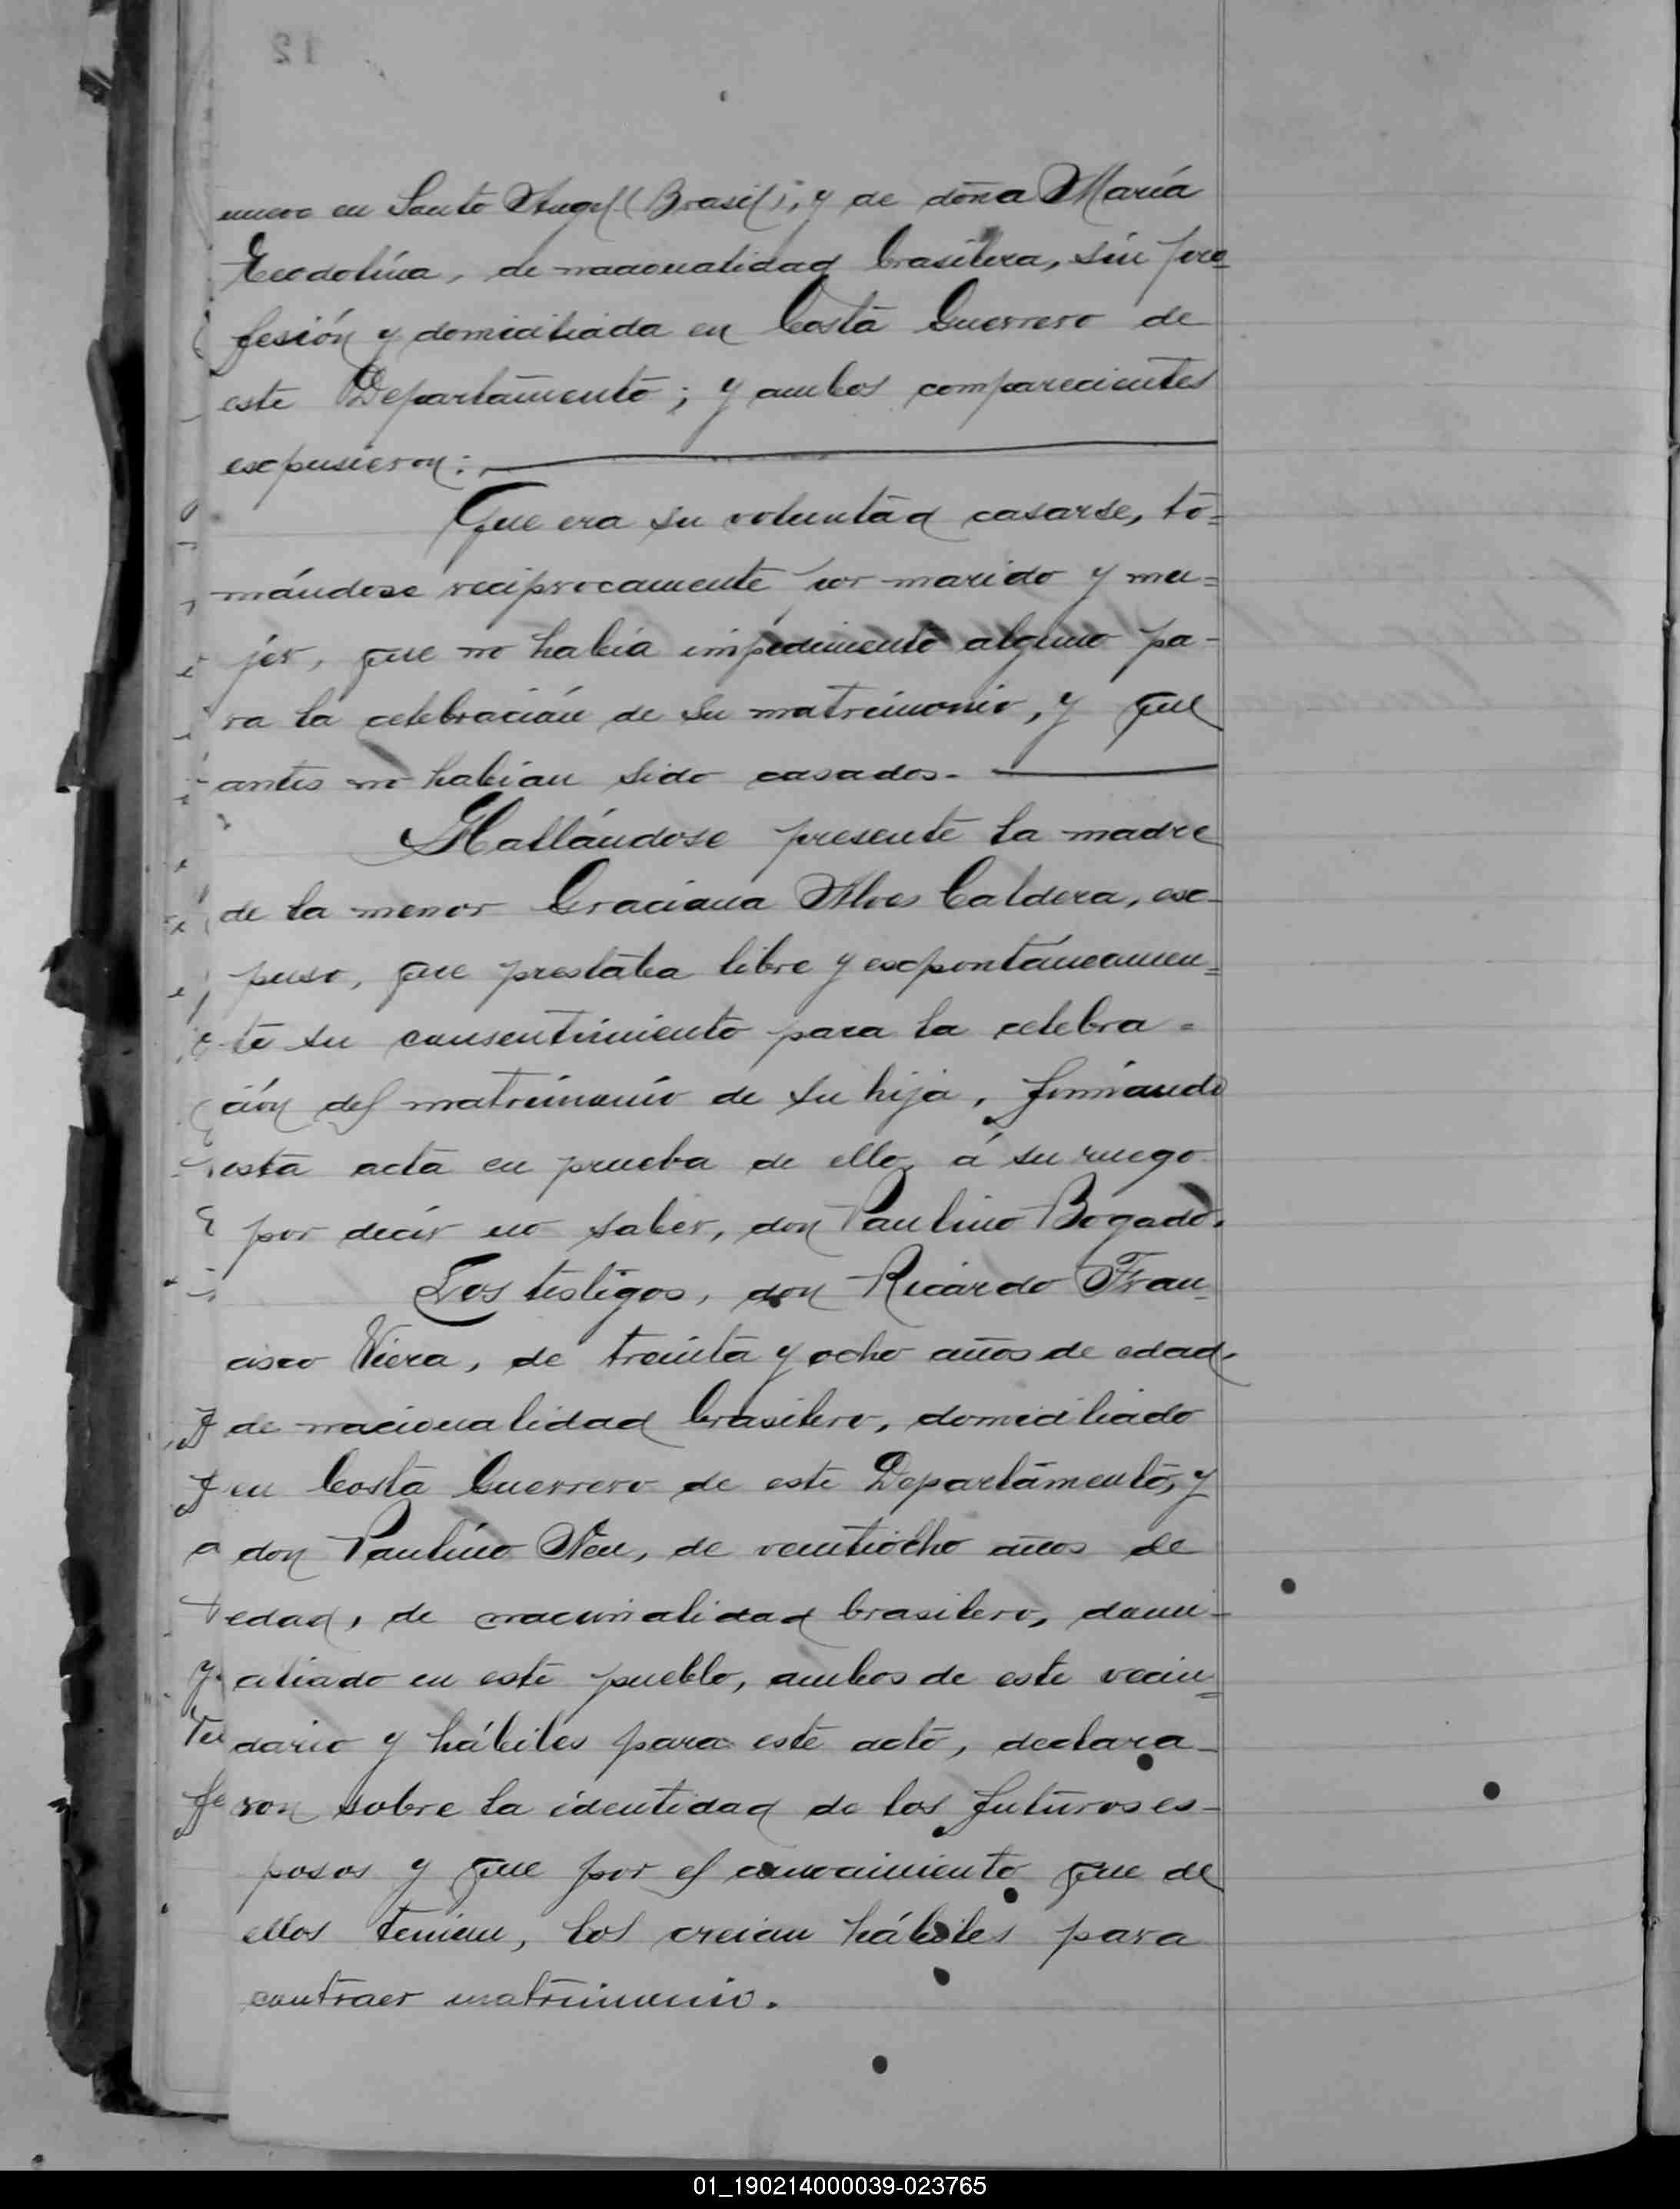 en Santo Angel (Brasil), y de doña María
Teodolina, de nacionalidad brasilera, sin pro=
fesión y domiciliada en Costa Guerrero de
este Departamento; y ambos comparecientes
escpusieron:
Que era su voluntad casarse, to=
mándose reciprocamente por marido y mu=
jer, que no habia impedimento alguno pa-
ra la celebración de su matrimonio, y que
antes no habian sido casados.-
Hallándose presente la madre
de la menor Graciana Alves Caldera, esc-
puso, que prestaba libre y escpontáneamen=
te su consentimiento para la celebra=
ción del matrimonio de su hija, firmando
esta acta en prueba de ello, á su ruego
por decir no saber, don Paulino Bogado.
Los testigos, don Ricardo Fran=
cisco Viera, de treinta y ocho años de edad,
de nacionalidad brasilero, domiciliado
en Costa Guerrero de este Departamento, y
don Paulino, de veintiocho años de
edad, de nacionalidad brasilero, domi-
ciliado en este pueblo, ambos de este vecin=
dario y hábiles para este acto, declara-
ron sobre la identidad de los futuros es-
posos y que por el conocimiento que de
ellos tenian, los creian hábiles para
contraer matrimonio.
01_190214000039-023765